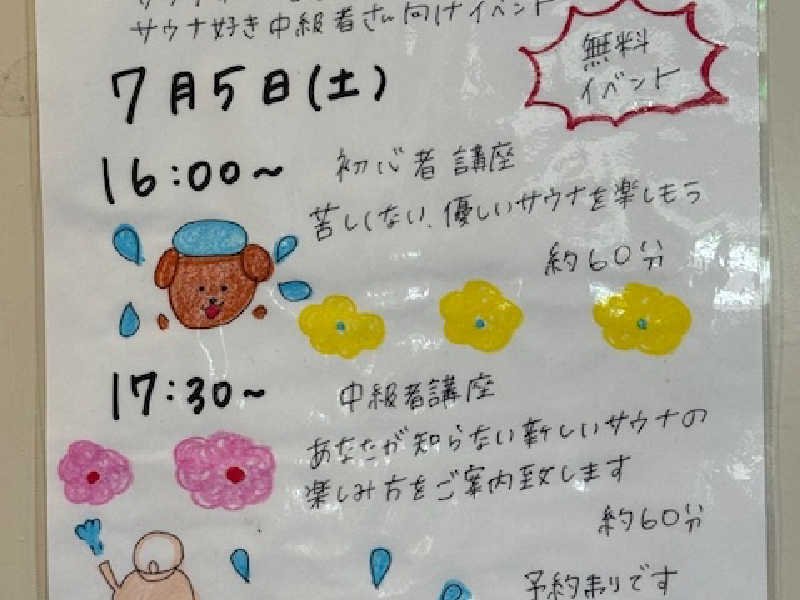 サウナ好き中級者さん向けイベント
無料
イベント
7月5日(土)
16:00~ 初心者講座
苦しくない、優しいサウナを楽しもう
約60分
17:30~ 中級者講座
あなたが知らない新しいサウナの
楽しみ方をご案内致します
約60分
予約制りです